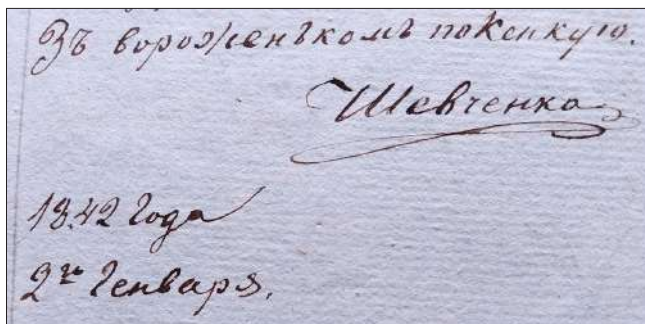 Зъ вороженькомъ покепкую.
Шевченко
1842 Года
2го Генваря.